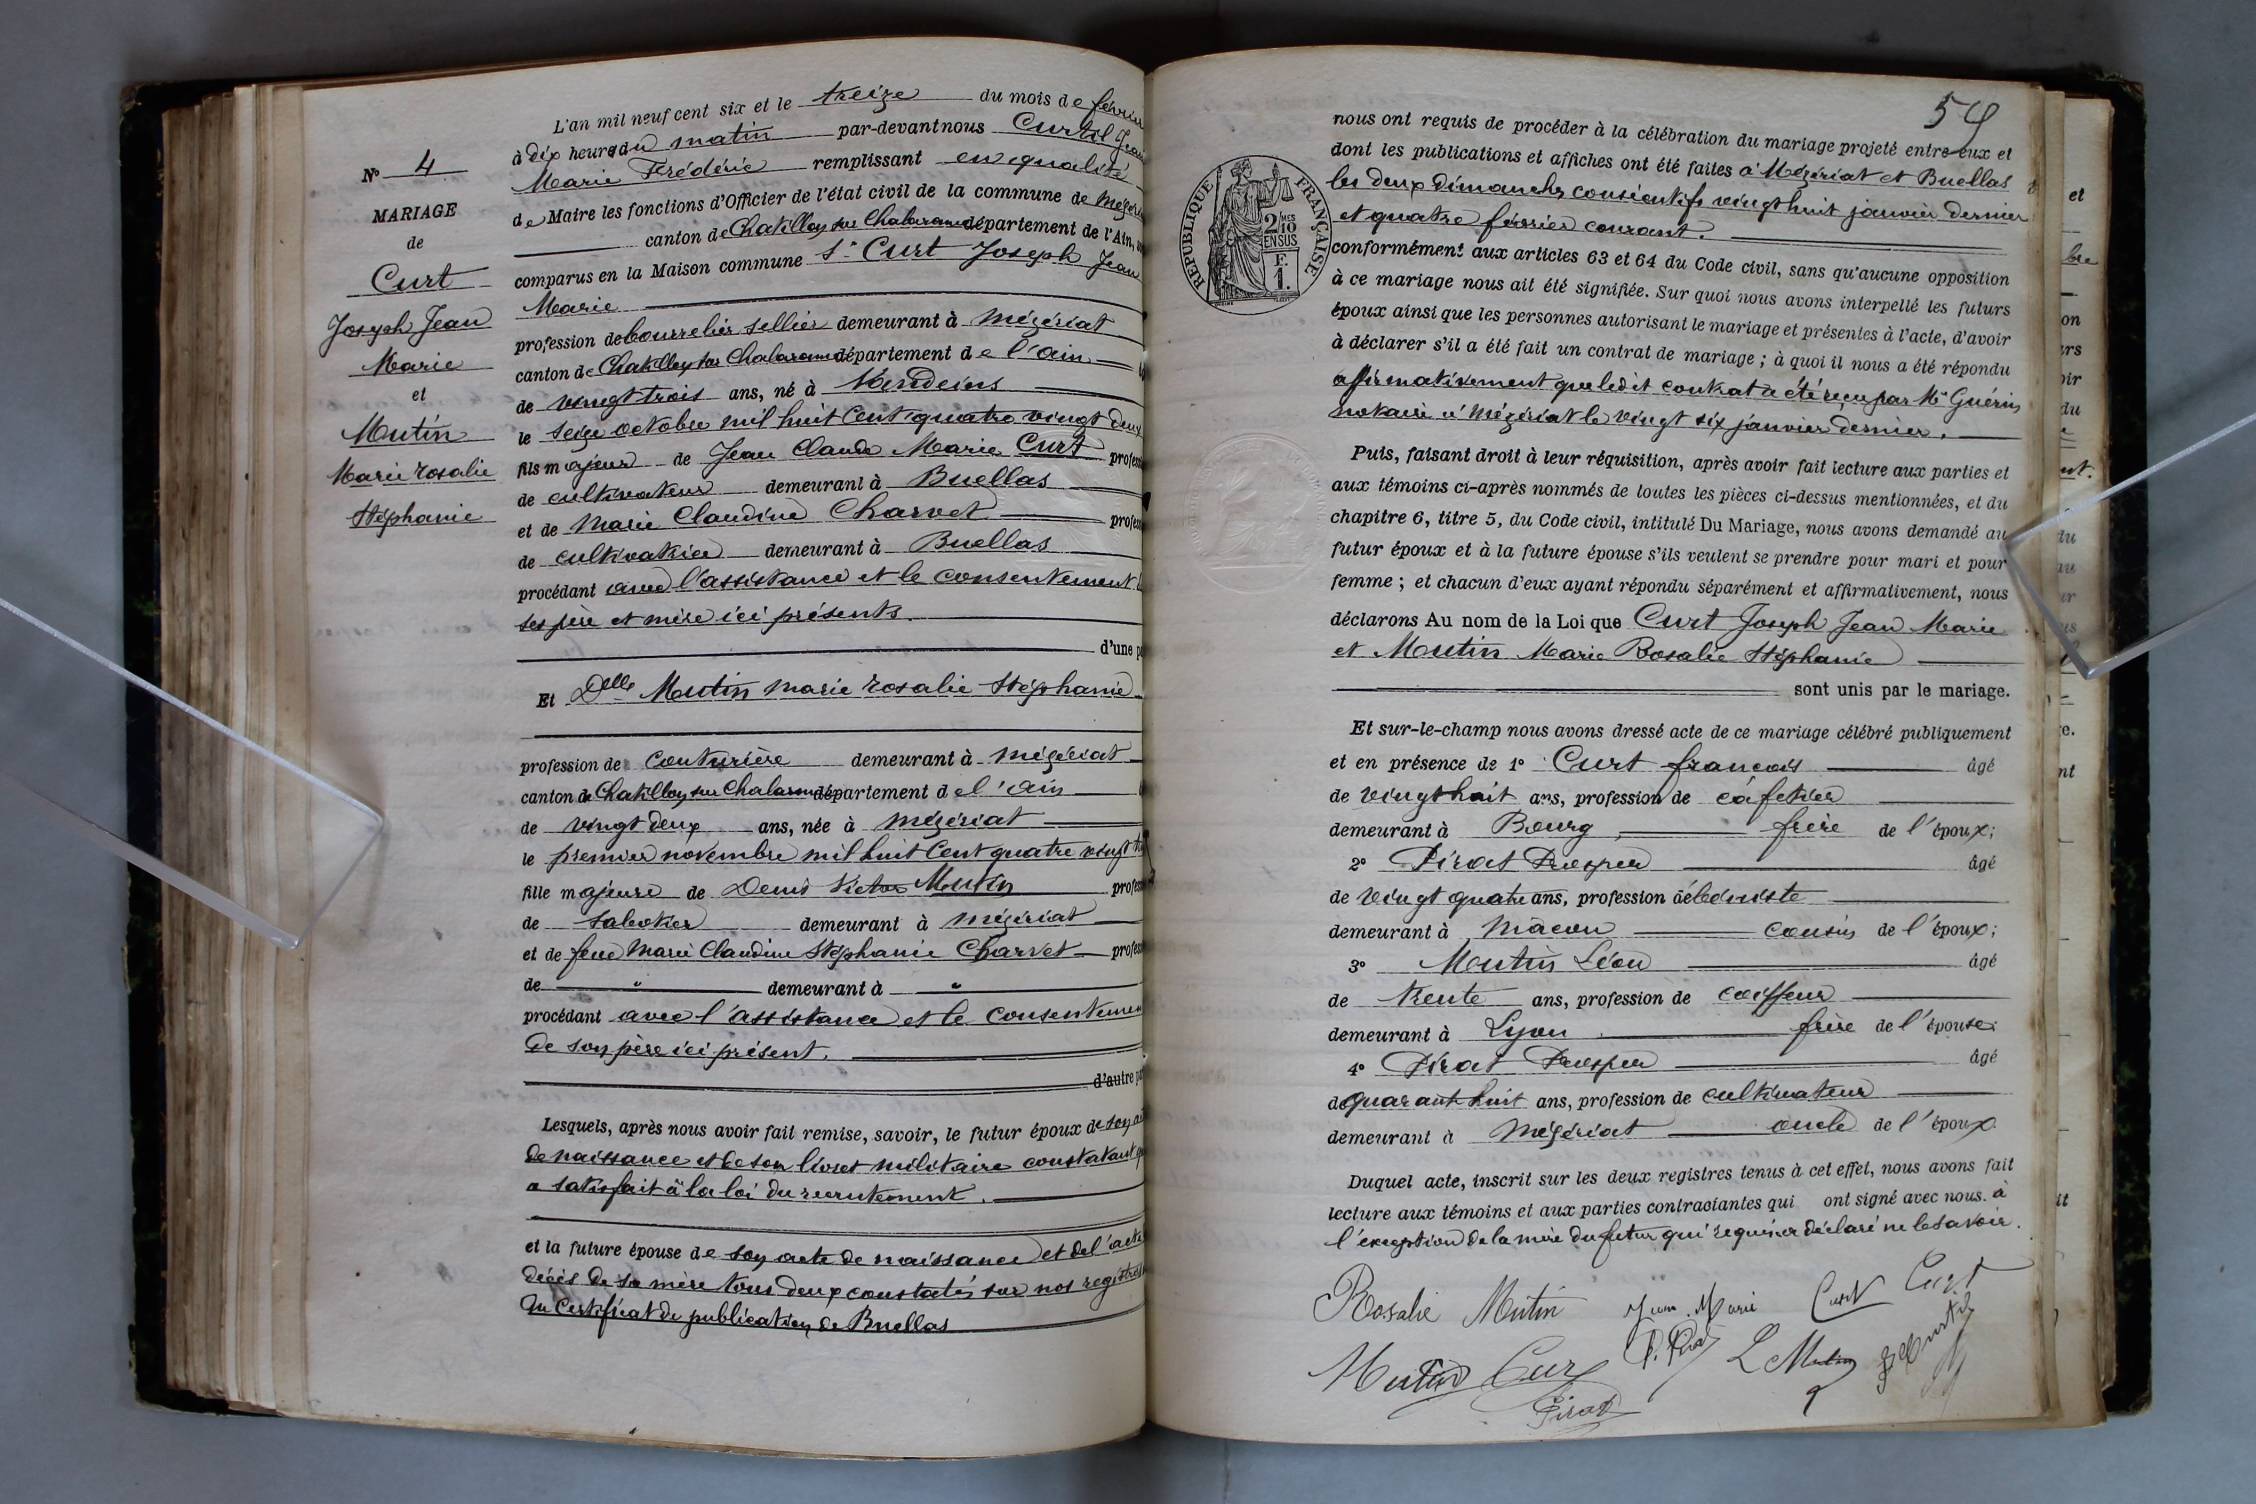 N° 4
MARIAGE
de
Curt
Joseph Jean
Marie
et
Mutin
Marie rosalie
Stéphanie
L'an mil neuf cent six et le treize du mois de février
à dix heures du matin par-devant nous Curtil Jean
Marie Frédéric remplissant en qualité
de Maire les fonctions d'Officier de l'état civil de la commune de Mézériat
canton de Chatillon sur Chalaronne département de l'Ain,
comparus en la Maison commune Sr Curt Joseph Jean
Marie
profession de bourrelier sellier demeurant à Mézériat
canton de Chatillon sur Chalaronne département de l'Ain
de vingt trois ans, né à Vandeins
le seize octobre mil huit cent quatre vingt deux
fils majeur de Jean Claude Marie Curt profess
de cultivateur demeurant à Buellas
et de Marie Claudine Charvet profess
de cultivatrice demeurant à Buellas
procédant avec l'assistance et le consentement
ses père et mère ici présents.
d'une pa
Et Delle Mutin marie rosalie Stéphanie
profession de couturière demeurant à Mézériat
canton de Chatillon sur Chalaronne département de l'Ain
de vingt deux ans, née à Mézériat
le premier novembre mil huit cent quatre vingt
fille majeure de Denis Victor Mutin profess
de sabotier demeurant à Mézériat
et de feue Marie Claudine Stéphanie Charvet profess
de " demeurant à "
procédant avec l'assistance et le consentemen
de son père ici présent.
d'autre pa
Lesquels, après nous avoir fait remise, savoir, le futur époux de son
de naissance et de son livret militaire constatant
a satisfait à la loi du recrutement.
et la future épouse de son acte de naissance et de l'acte
décès de sa mère tous deux constatés sur nos registres
du certificat de publication de Buellas
54
RÉPUBLIQUE FRANÇAISE
2/10 MES
EN SUS
F.
1.
nous ont requis de procéder à la célébration du mariage projeté entre eux et
dont les publications et affiches ont été faites à Mézériat et Buellas
les deux dimanches consécutifs vingt huit janvier dernier
et quatre février courant.
conformément aux articles 63 et 64 du Code civil, sans qu'aucune opposition
à ce mariage nous ait été signifiée. Sur quoi nous avons interpellé les futurs
époux ainsi que les personnes autorisant le mariage et présentes à l'acte, d'avoir
à déclarer s'il a été fait un contrat de mariage ; à quoi il nous a été répondu
affirmativement que ledit contrat a été reçu par Me Guérin
notaire à Mézériat le vingt six janvier dernier.
Puis, faisant droit à leur réquisition, après avoir fait lecture aux parties et
aux témoins ci-après nommés de toutes les pièces ci-dessus mentionnées, et du
chapitre 6, titre 5, du Code civil, intitulé Du Mariage, nous avons demandé au
futur époux et à la future épouse s'ils veulent se prendre pour mari et pour
femme ; et chacun d'eux ayant répondu séparément et affirmativement, nous
déclarons Au nom de la Loi que Curt Joseph Jean Marie
et Mutin Marie Rosalie Stéphanie
sont unis par le mariage.
Et sur-le-champ nous avons dressé acte de ce mariage célébré publiquement
et en présence de 1° Curt françois âgé
de vingt huit ans, profession de cafetier
demeurant à Bourg, frère de l'époux;
2° Pirat Prosper âgé
de vingt quatre ans, profession d'ébéniste
demeurant à Mâcon cousin de l'époux;
3° Mutin Léon âgé
de trente ans, profession de coiffeur
demeurant à Lyon frère de l'épouse;
4° Pirat Prosper âgé
de quarant huit ans, profession de cultivateur
demeurant à Mézériat oncle de l'époux
Duquel acte, inscrit sur les deux registres tenus à cet effet, nous avons fait
lecture aux témoins et aux parties contractantes qui ont signé avec nous. à
l'exception de la mère du futur qui requise a déclaré ne le savoir.
Rosalie Mutin Jean Marie Curt Curt
Mutin Curt P. Pirat L Mutin
Pirat